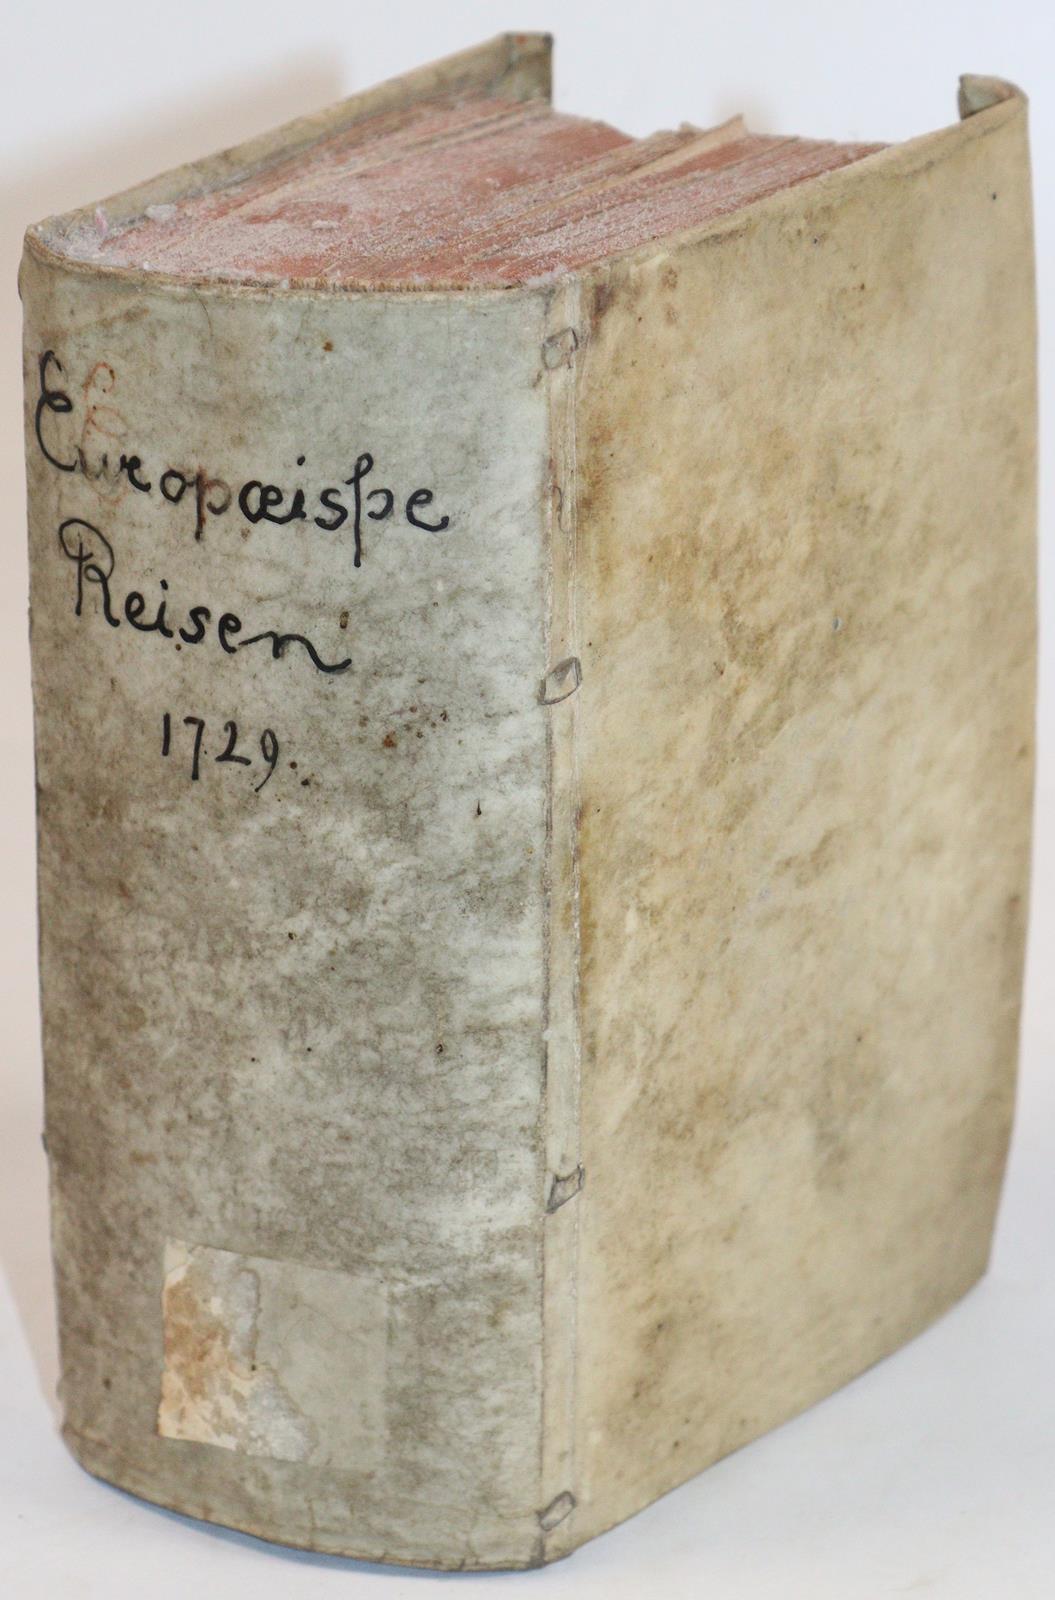 Europœisþe
Reisen
1729.